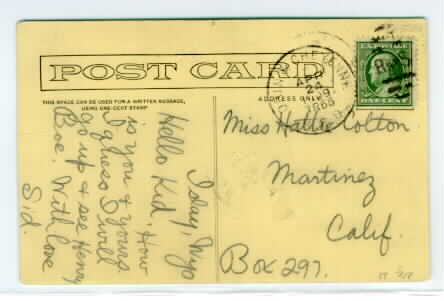 POST CARD
THIS SPACE CAN BE USED FOR A WRITTEN MESSAGE,
USING ONE-CENT STAMP
ADDRESS ONLY
CHEYENNE
ONE CENT
Iday, Wyo
Hello Kid, How
is you & yours
I guess I will
go up & see Henry
Boe. With love
Sid.
Miss Hattie Colton
Martinez
Calif.
Box 297.